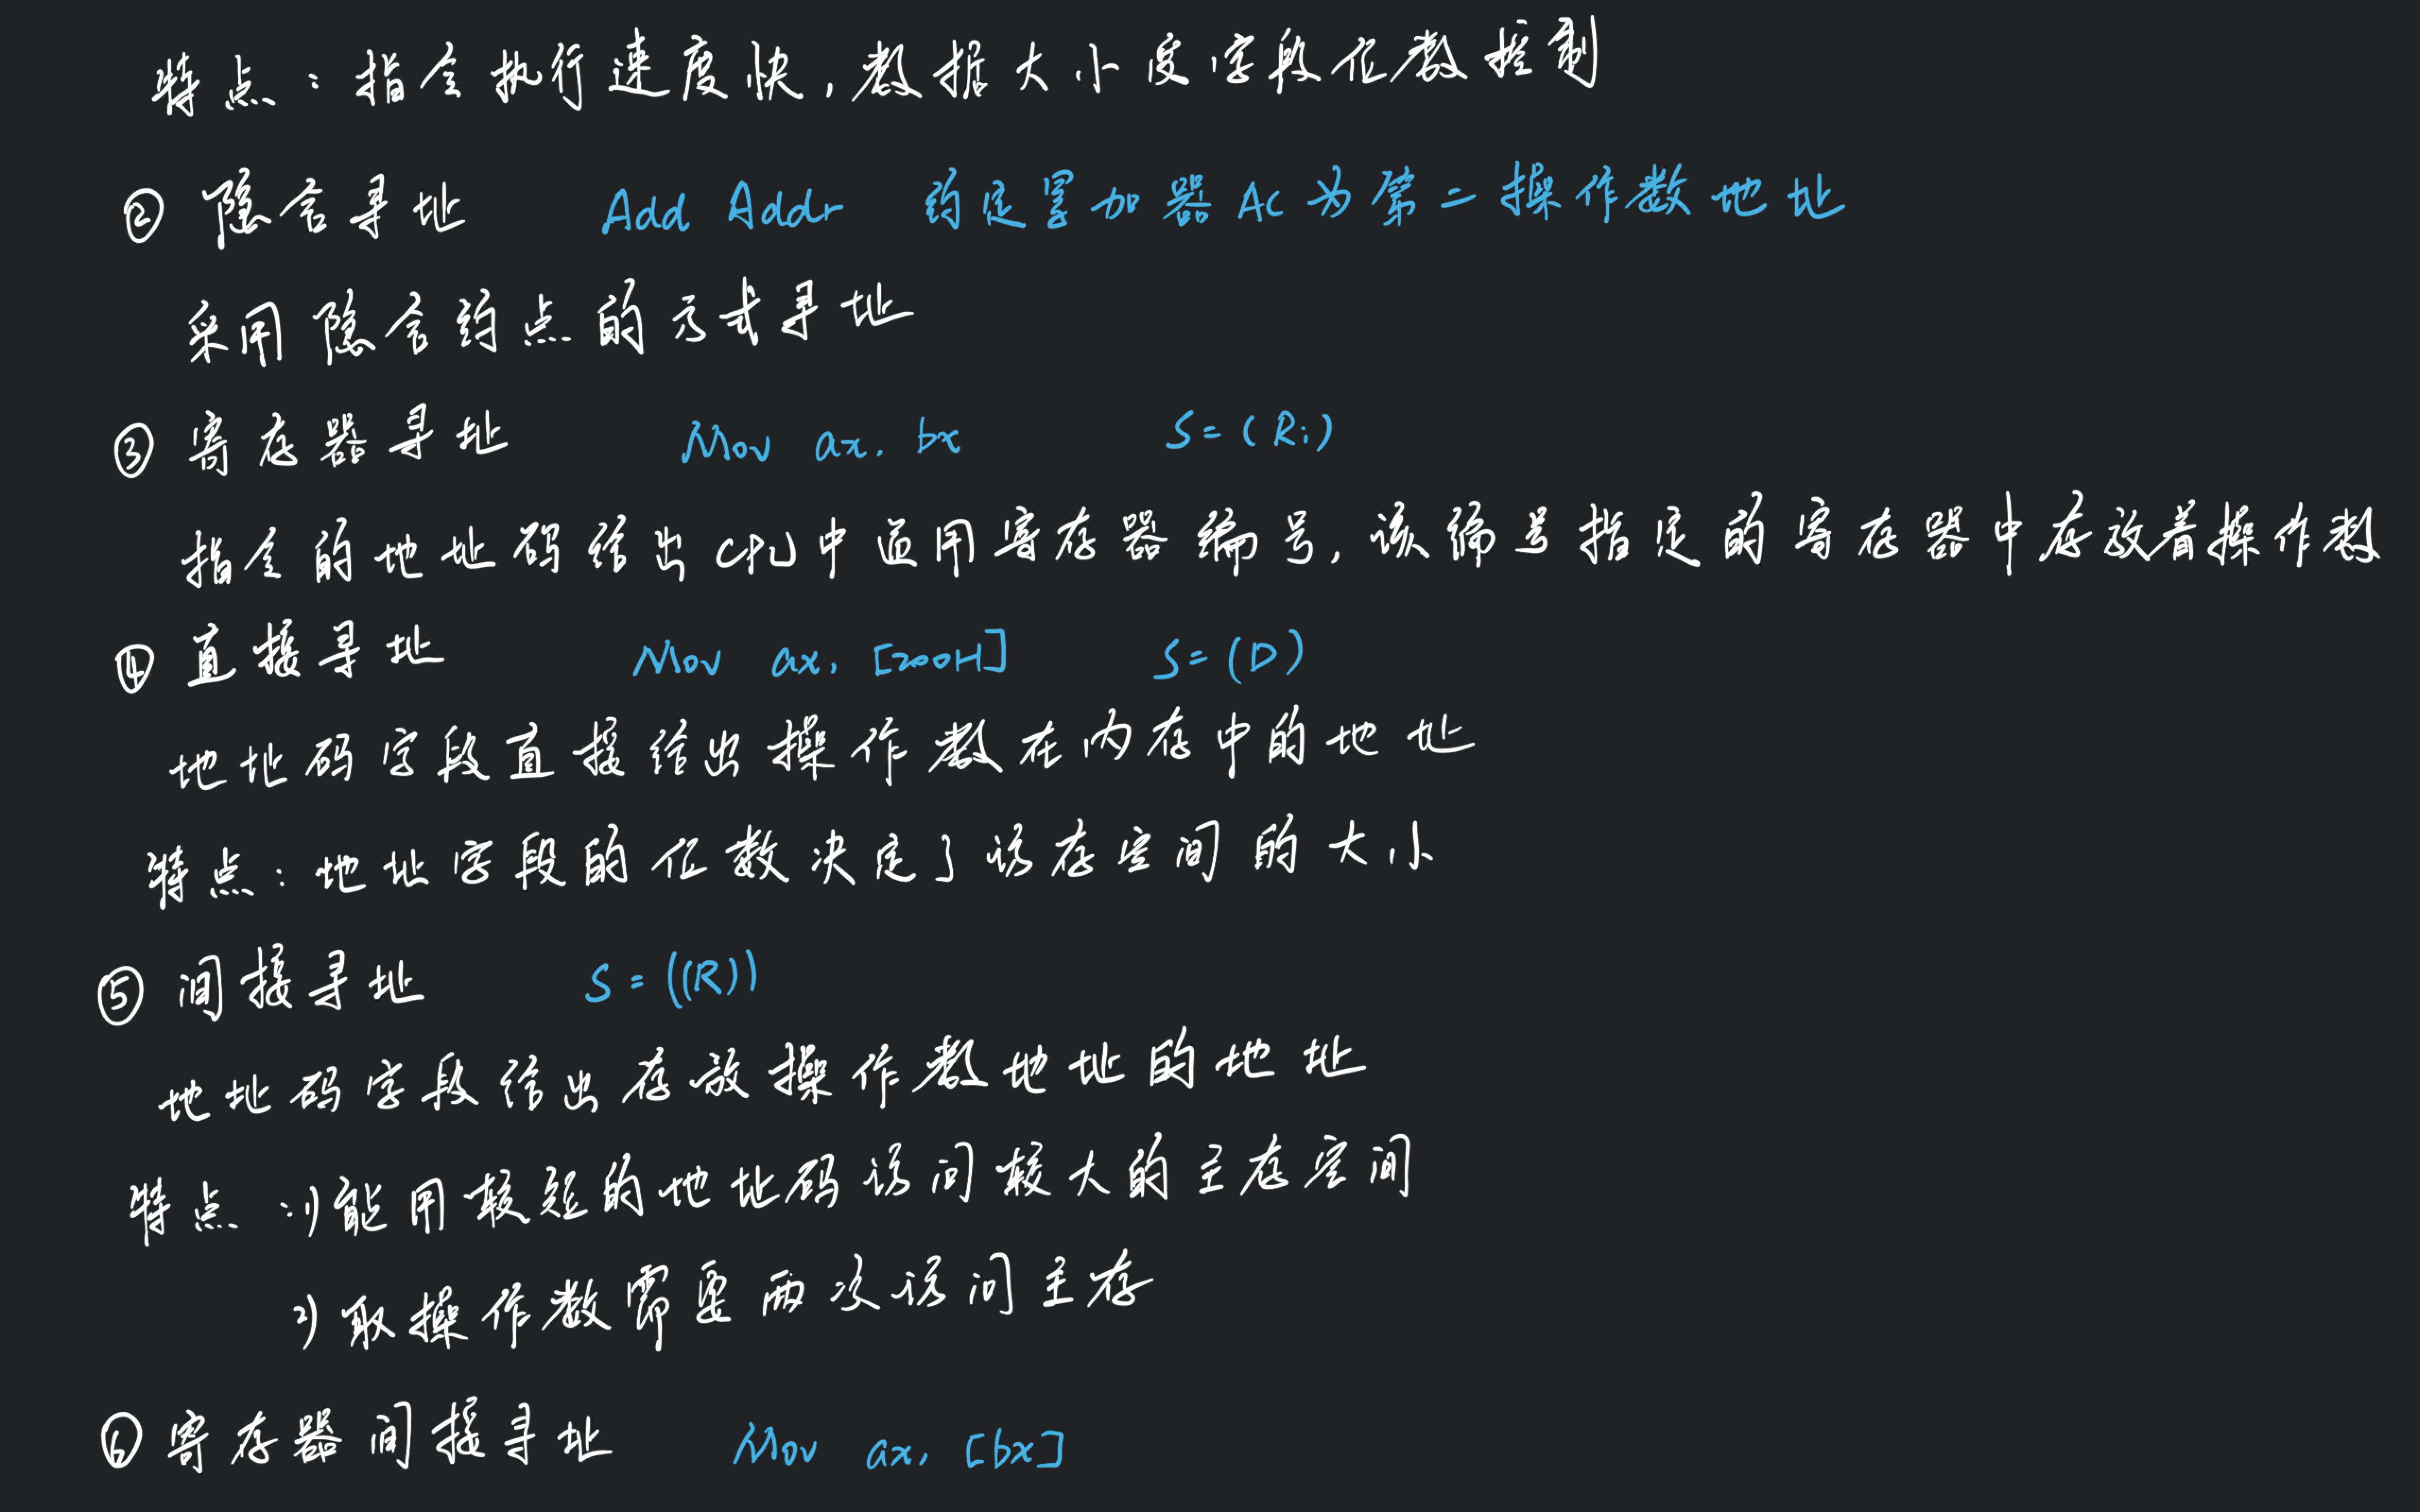 特点：指令执行速度快，数据大小受字段位数控制
② 隐含寻址 Add Addr 约定累加器 AC 为第二操作数地址
采用隐含约点的方式寻址
③ 寄存器寻址 Mov ax, bx S=(Ri)
指令的地址码给出CPU中通用寄存器编号，该编号指定的寄存器中存放着操作数
④ 直接寻址 Mov ax, [200H] S=(D)
地址码字段直接给出操作数在内存中的地址
特点：地址字段的位数决定了访存空间的大小
⑤ 间接寻址 S=((R))
地址码字段给出存放操作数地址的地址
特点：1)能用较短的地址码访问较大的主存空间
2)取操作数需要两次访问主存
⑥ 寄存器间接寻址 Mov ax, [bx]